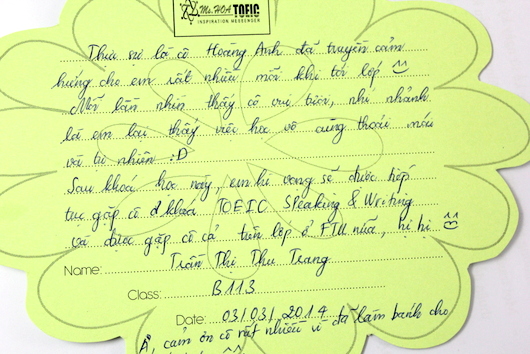 Ms. HOA TOEIC
INSPIRATION MESSENGER
Thực sự là cô Hoàng Anh đã truyền cảm
hứng cho em rất nhiều mỗi khi tới lớp
Mỗi lần nhìn thấy cô vui tươi, nhí nhảnh
là em lại thấy việc học vô cùng thoải mái
và tự nhiên :D
Sau khoá học này, em hi vọng sẽ được tiếp
tục gặp cô ở khoá TOEIC Speaking & Writing
và được gặp cô cả trên lớp ở FTU nữa, hi hi
Name: Trần Thị Thu Trang
Class: B113
Date: 03/03/2014
À, cảm ơn cô rất nhiều vì đã làm bánh cho